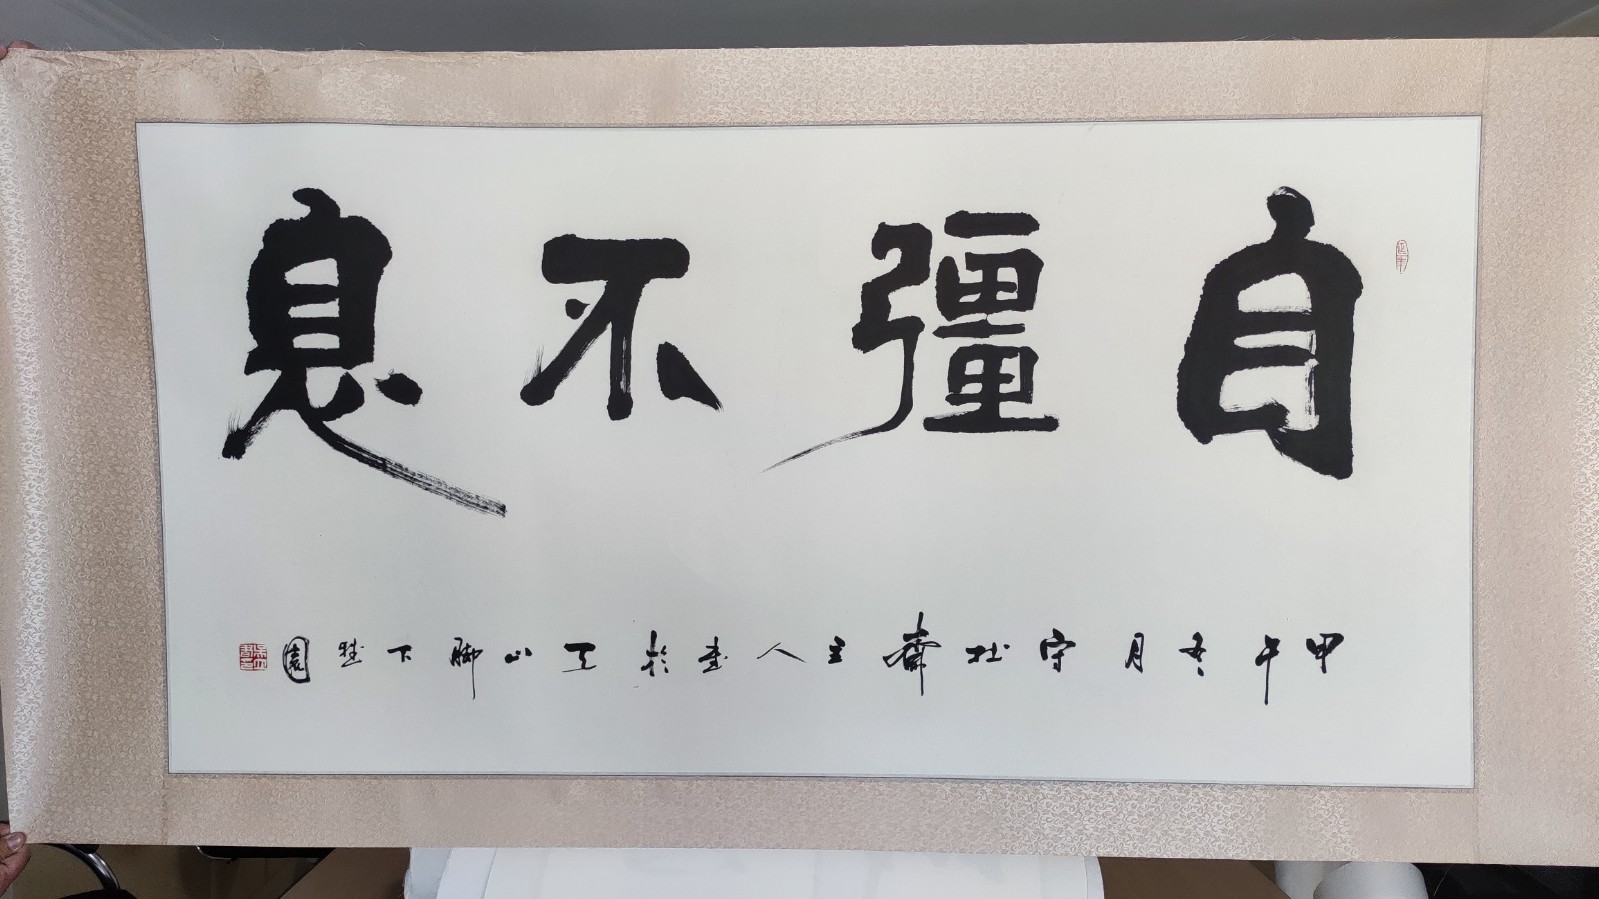 自彊不息
甲午冬月守拙齋主人書於王山腳下醉園